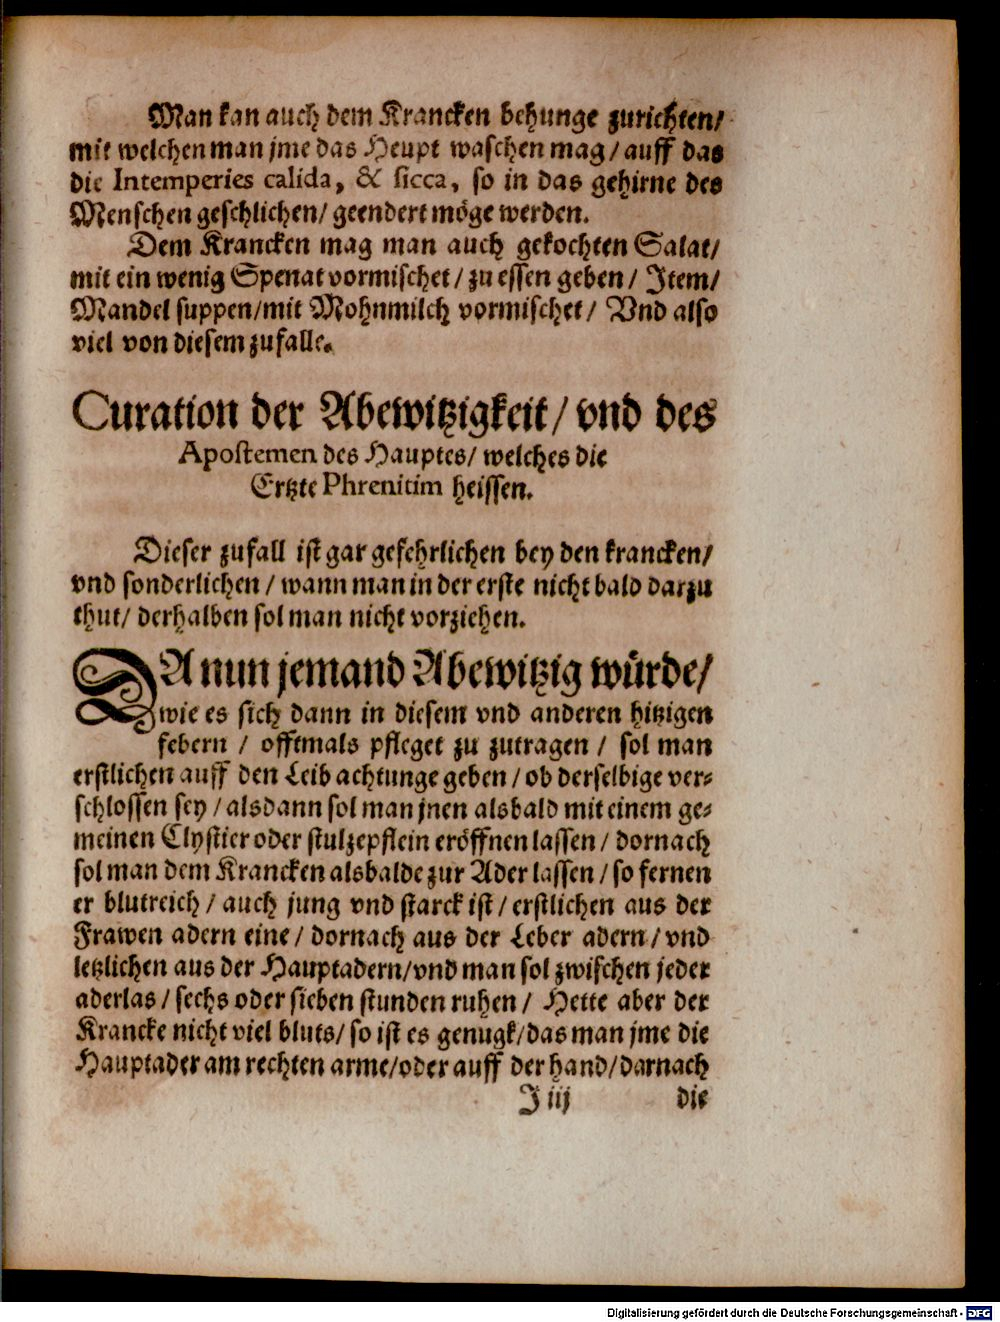 Man kan auch dem Krancken behunge zurichten/
mit welchen man jme das Heupt waschen mag/ auff das
die Intemperies calida, & sicca, so in das gehirne des
Menschen geschlichen/ geendert möge werden.
Dem Krancken mag man auch gekochten Salat/
mit ein wenig Spenat vormischet/ zu essen geben/ Item/
Mandel suppen/ mit Mohnmilch vormischet/ Vnd also
viel von diesem zufalle.
Curation der Abewitzigkeit/ vnd des
Apostemen des Hauptes/ welches die
Ertzte Phrenitim heissen.
Dieser zufall ist gar gefehrlichen bey den krancken/
vnd sonderlichen/ wann man in der erste nicht bald darzu
thut/ derhalben sol man nicht vorziehen.
DA nun jemand Abewitzig würde/
wie es sich dann in diesem vnd anderen hitzigen
febern / offtmals pfleget zu zutragen / sol man
erstlichen auff den Leib achtunge geben/ ob derselbige ver⸗
schlossen sey/ alsdann sol man jnen alsbald mit einem ge⸗
meinen Clystier oder stulzepflein eröffnen lassen/ dornach
sol man dem Krancken alsbalde zur Ader lassen/ so fernen
er blutreich/ auch jung vnd starck ist/ erstlichen aus der
Frawen adern eine/ dornach aus der Leber adern/ vnd
letzlichen aus der Hauptadern/ vnd man sol zwischen jeder
aderlas/ sechs oder sieben stunden ruhen/ Hette aber der
Krancke nicht viel bluts/ so ist es genugk/ das man jme die
Hauptader am rechten arme/ oder auff der hand/ darnach
J iij die
Digitalisierung gefördert durch die Deutsche Forschungsgemeinschaft - DFG